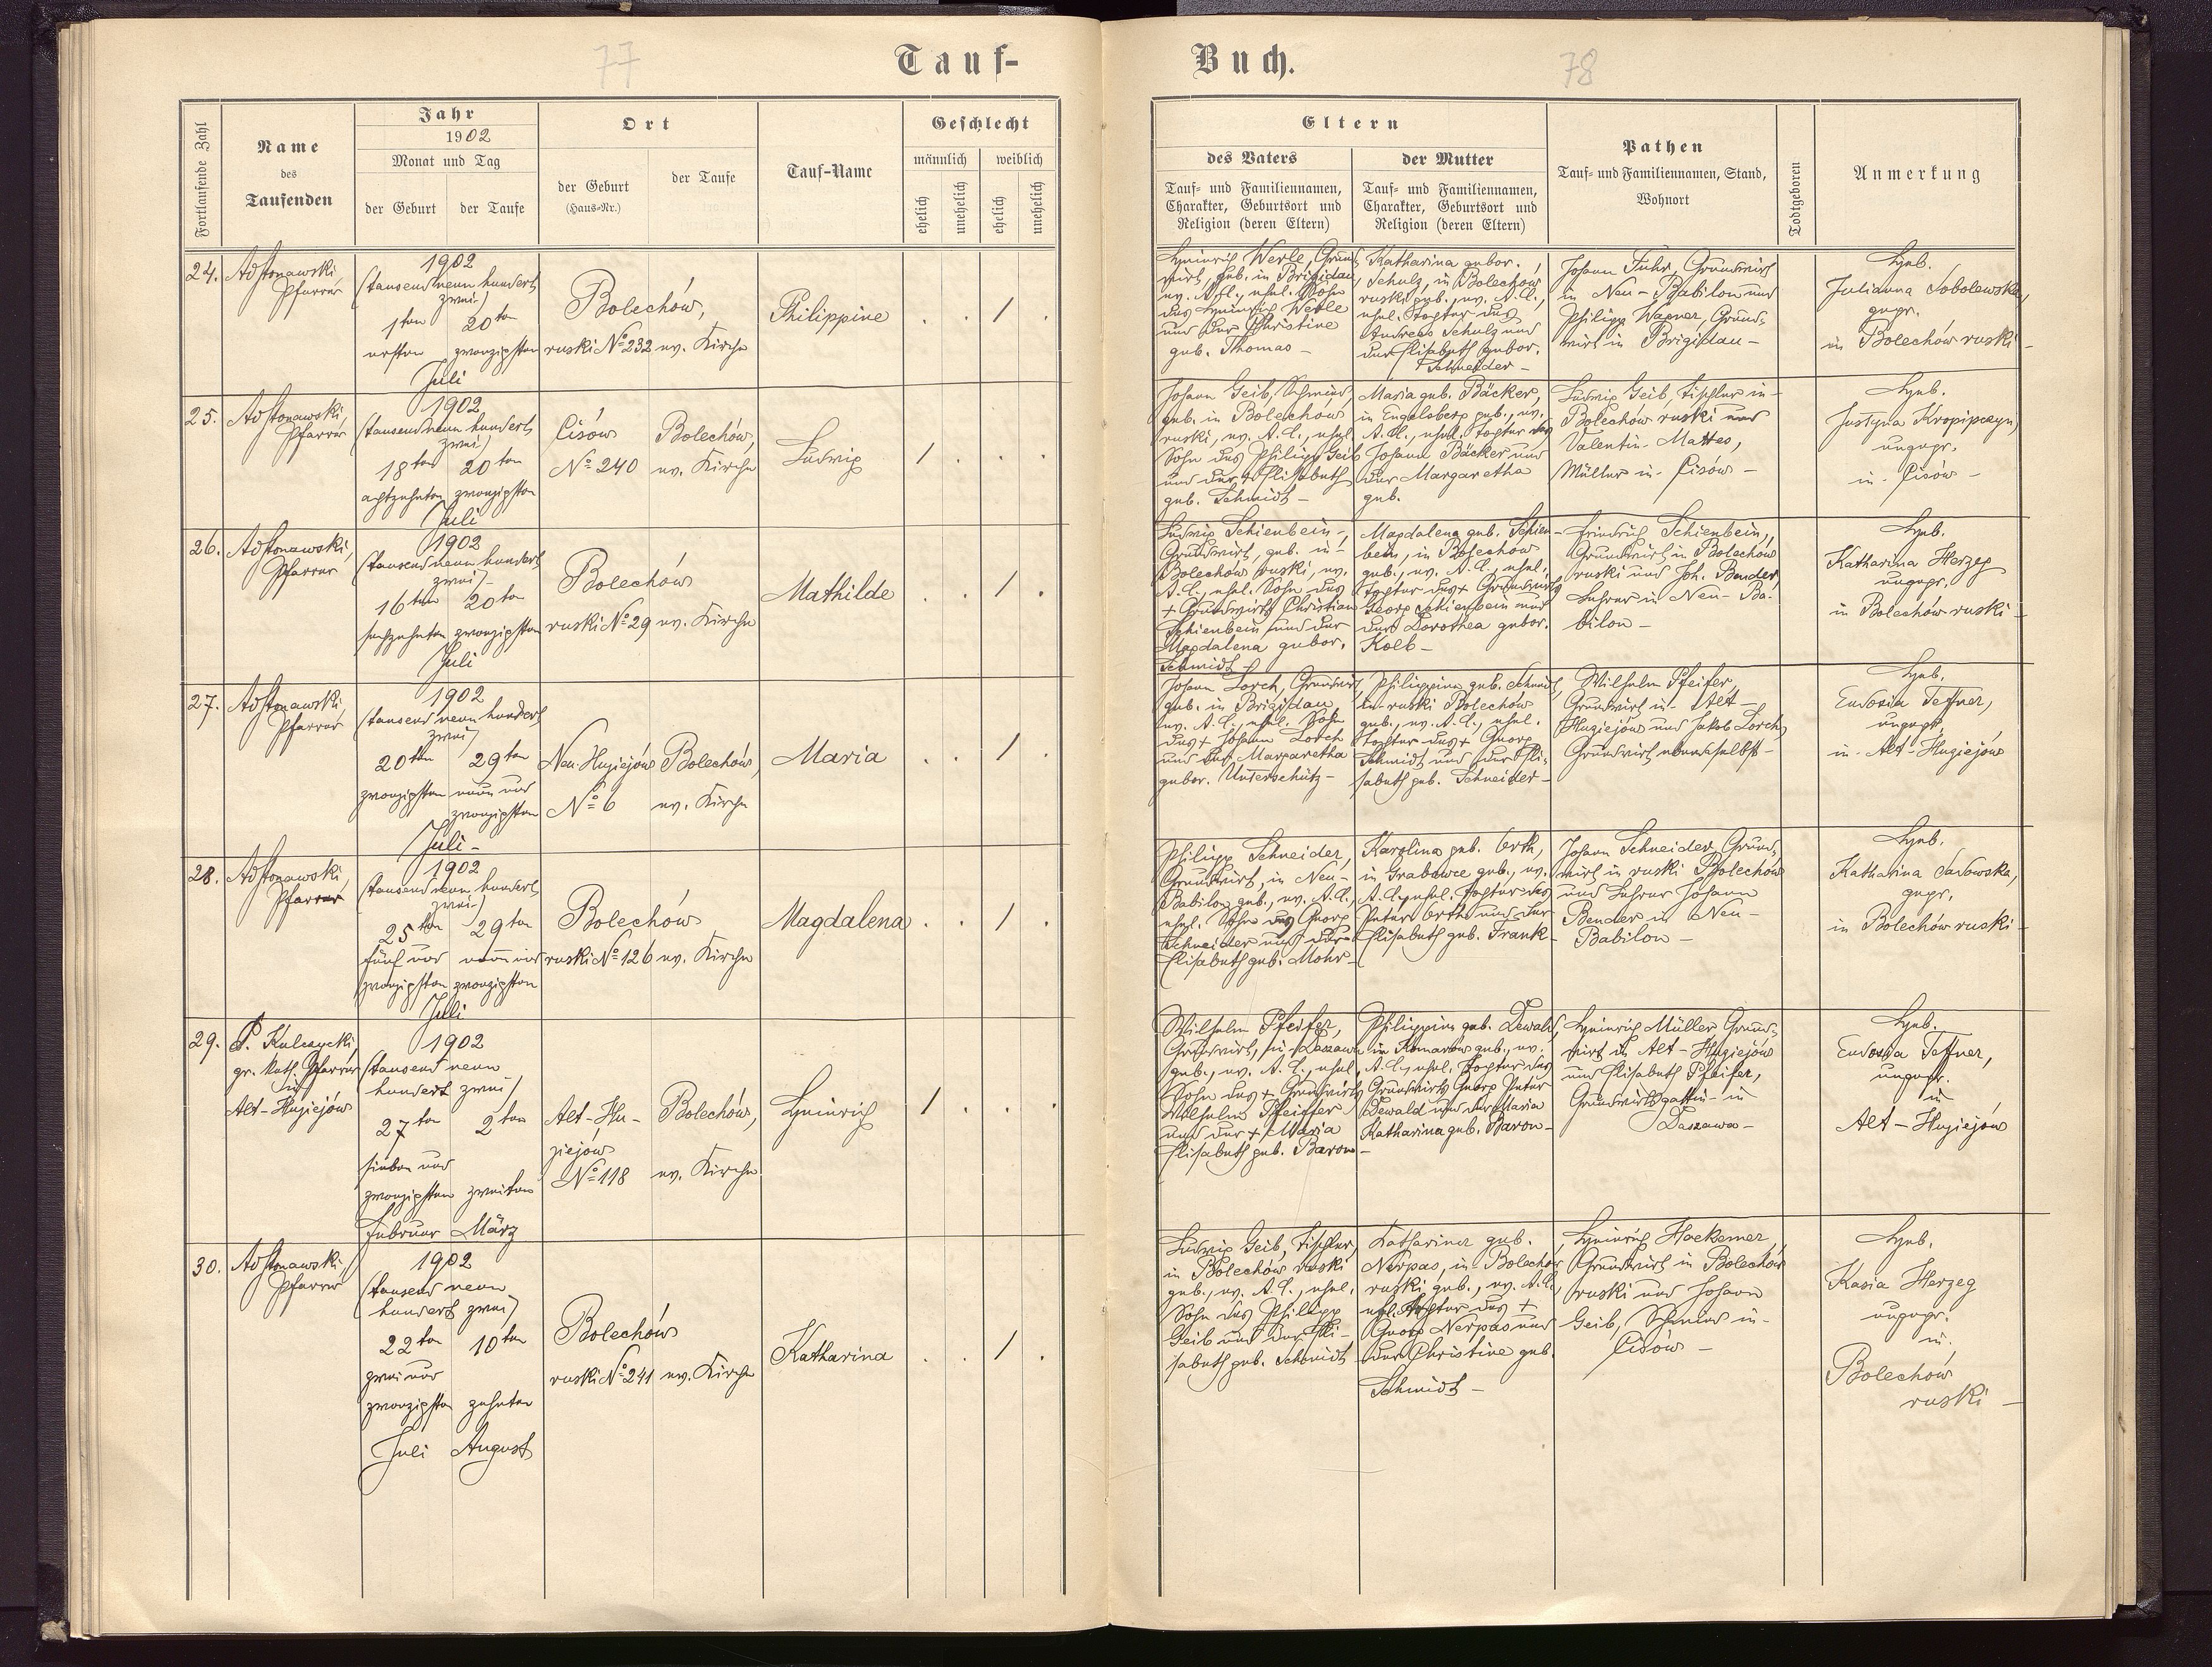 77
Tauf-
Fortlaufende Zahl
Name
des
Taufenden
Jahr
1902
Monat und Tag
der Geburt
der Taufe
Ort
der Geburt
(Haus-Nr.)
der Taufe
Tauf-Name
Geschlecht
männlich
weiblich
ehelich
unehelich
ehelich
unehelich
24.
Pfarrer
1902
(tausend neun hundert
zwei)
1ten 20ten
ersten zwanzigsten
Juli
Bolechów,
ruski No 232 ev. Kirche
Philippine
. . / .
25.
Pfarrer
1902
(tausend neun hundert
zwei)
18ten 20ten
achtzehnten zwanzigsten
Juli
Lisów Bolechów,
No 240 ev. Kirche
Ludwig
/ . . .
26.
Pfarrer
1902
(tausend neun hundert
zwei)
16ten 20ten
sechzehnten zwanzigsten
Juli
Bolechów
ruski No 29 ev. Kirche
Mathilde
. . / .
27.
Pfarrer
1902
(tausend neun hundert
zwei)
20ten 29ten
zwanzigsten neun und
zwanzigsten
Juli -
Neu-Hugiejów Bolechów,
No 6 ev. Kirche
Maria
. . / .
28.
Pfarrer
1902
(tausend neun hundert
zwei)
25ten 29ten
fünf und neun und
zwanzigsten zwanzigsten
Juli
Bolechów
ruski No 126 ev. Kirche
Magdalena
. . / .
29.
P. Kulczycki,
gr. kath. Pfarrer
in
Alt-Hugiejów
1902
(tausend neun
hundert zwei)
27ten 2ten
sieben und
zwanzigsten zweiten
Februar März
Alt-Hu- Bolechów,
giejów
No 118 ev. Kirche
Heinrich
/ . . .
30.
Pfarrer
1902
(tausend neun
hundert zwei)
22ten 10ten
zwei und
zwanzigsten zehnten
Juli August
Bolechów
ruski No 241 ev. Kirche
Katharina
. . / .
Buch.
78
Eltern
des Vaters
Tauf- und Familiennamen,
Charakter, Geburtsort und
Religion (deren Eltern)
der Mutter
Tauf- und Familiennamen,
Charakter, Geburtsort und
Religion (deren Eltern)
Pathen
Tauf- und Familiennamen, Stand,
Wohnort
Todtgeboren
Anmerkung
Heinrich Werle, Grund-
wirt, geb. in Brigidau,
ev. A.C., ehel. Sohn
des Heinrich Werle
und der Christine
geb. Thomas -
Katharina gebor.
Schulz, in Bolechów
ruski geb., ev. A.C.,
ehel. Tochter des
Andreas Schulz und
der Elisabeth gebor.
Schneider -
Johann Fuhr, Grundwirt
in Neu-Babilon und
Philipp Wagner, Grund-
wirt in Brigidau -
Heb.
Julianna Sobolewska,
gepr.
in Bolechów ruski -
Johann Geib, Schmied,
geb. in Bolechów
ruski, ev. A.C., ehel.
Sohn des Philipp Geib
und der + Elisabeth
geb. Schmidt -
Maria geb. Bäcker,
in Engelsberg geb., ev.
A.C., ehel. Tochter des
Johann Bäcker und
der Margaretha
geb.
Ludwig Geib, Tischler in
Bolechów ruski und
Valentin Matteo,
Müller in Lisów -
Heb.
ungepr.
in Lisów -
Ludwig Schienbein,
Grundwirt, geb. in
Bolechów ruski, ev.
A.C., ehel. Sohn des
+ Grundwirts Christian
Schienbein und der
Magdalena gebor.
Schmidt +
Magdalena geb. Schien-
bein, in Bolechów
geb., ev. A.C., ehel.
Tochter des + Grundwirts
Georg Schienbein und
der Dorothea gebor.
Kolb -
Friedrich Schienbein,
Grundwirt in Bolechów
ruski und Joh. Bender,
Lehrer in Neu-Ba-
bilon -
Heb.
Katharina Herzeg
ungepr.
in Bolechów ruski -
Johann Lorch, Grundwirt,
geb. in Brigidau,
ev. A.C., ehel. Sohn
des + Johann Lorch
und der Margaretha
gebor. Unterschütz -
Philippine geb. Schmidt,
in ruski Bolechów
geb., ev. A.C., ehel.
Tochter des + Georg
Schmidt und der Eli-
sabeth geb. Schneider -
Wilhelm Pfeifer,
Grundwirt in Alt-
Hugiejów und Jakob Lorch,
Grundwirt ebendaselbst -
Heb.
Eudosia Teffner,
ungepr.
in Alt-Hugiejów
Philipp Schneider,
Grundwirt, in Neu-
Babilon geb., ev. A.C.,
ehel. Sohn des Georg
Schneider und der
Elisabeth geb. Mohr -
Karolina geb. Orth,
in Grabowce geb., ev.
A.C., ehel. Tochter des
Peter Orth und der
Elisabeth geb. Frank -
Johann Schneider, Grund-
wirt in ruski Bolechów
und Lehrer Johann
Bender in Neu-
Babilon -
Heb.
Katharina Sadowska,
gepr.
in Bolechów ruski -
Wilhelm Pfeifer,
Grundwirt, in Daszawa
geb., ev. A.C., ehel.
Sohn des + Grundwirts
Wilhelm Pfeiffer
und der + Maria
Elisabeth geb. Baron -
Philippine geb. Dewald,
in Komarów geb., ev.
A.C., ehel. Tochter des
Grundwirts Georg Peter
Dewald und der Maria
Katharina geb. Baron -
Heinrich Müller Grund-
wirt in Alt-Hugiejów
und Elisabeth Pfeifer,
Grundwirtsgattin in
Daszawa -
Heb.
Eudosia Teffner,
ungepr.
in
Alt-Hugiejów
Ludwig Geib, Tischler,
in Bolechów ruski
geb., ev. A.C., ehel.
Sohn des Philipp
Geib und der Eli-
sabeth geb. Schmidt
Katharina geb.
Nerpas, in Bolechów
ruski geb., ev. A.C.,
ehel. Tochter des +
Georg Nerpas und
der Christine geb.
Schmidt -
Heinrich Hackemer,
Grundwirt in Bolechów
ruski und Johann
Geib, Schmied in
Lisów -
Heb.
Kasia Herzeg
ungepr.
in
Bolechów
ruski -